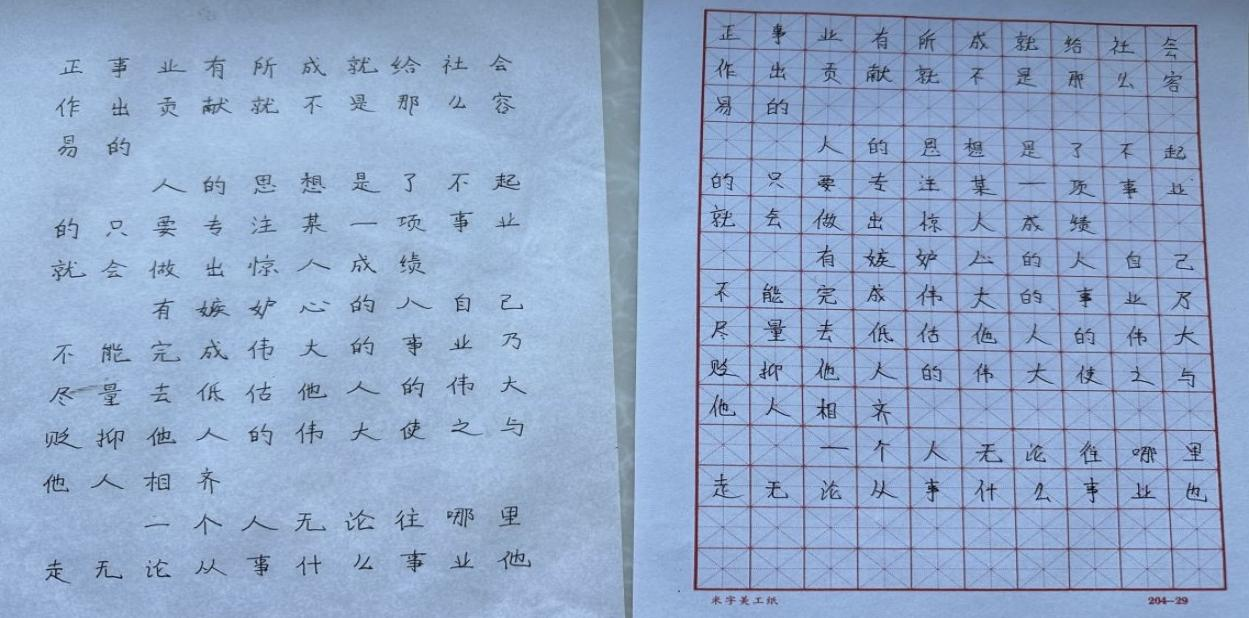 正事业有所成就给社会
作出贡献就不是那么容
易的
人的思想是了不起
的只要专注某一项事业
就会做出惊人成绩
有嫉妒心的人自己
不能完成伟大的事业乃
尽量去低估他人的伟大
贬抑他人的伟大使之与
他人相齐
一个人无论往哪里
走无论从事什么事业他
正事业有所成就给社会
作出贡献就不是那么容
易的
人的思想是了不起
的只要专注某一项事业
就会做出惊人成绩
有嫉妒心的人自己
不能完成伟大的事业乃
尽量去低估他人的伟大
贬抑他人的伟大使之与
他人相齐
一个人无论往哪里
走无论从事什么事业他
米字美工纸 204-29